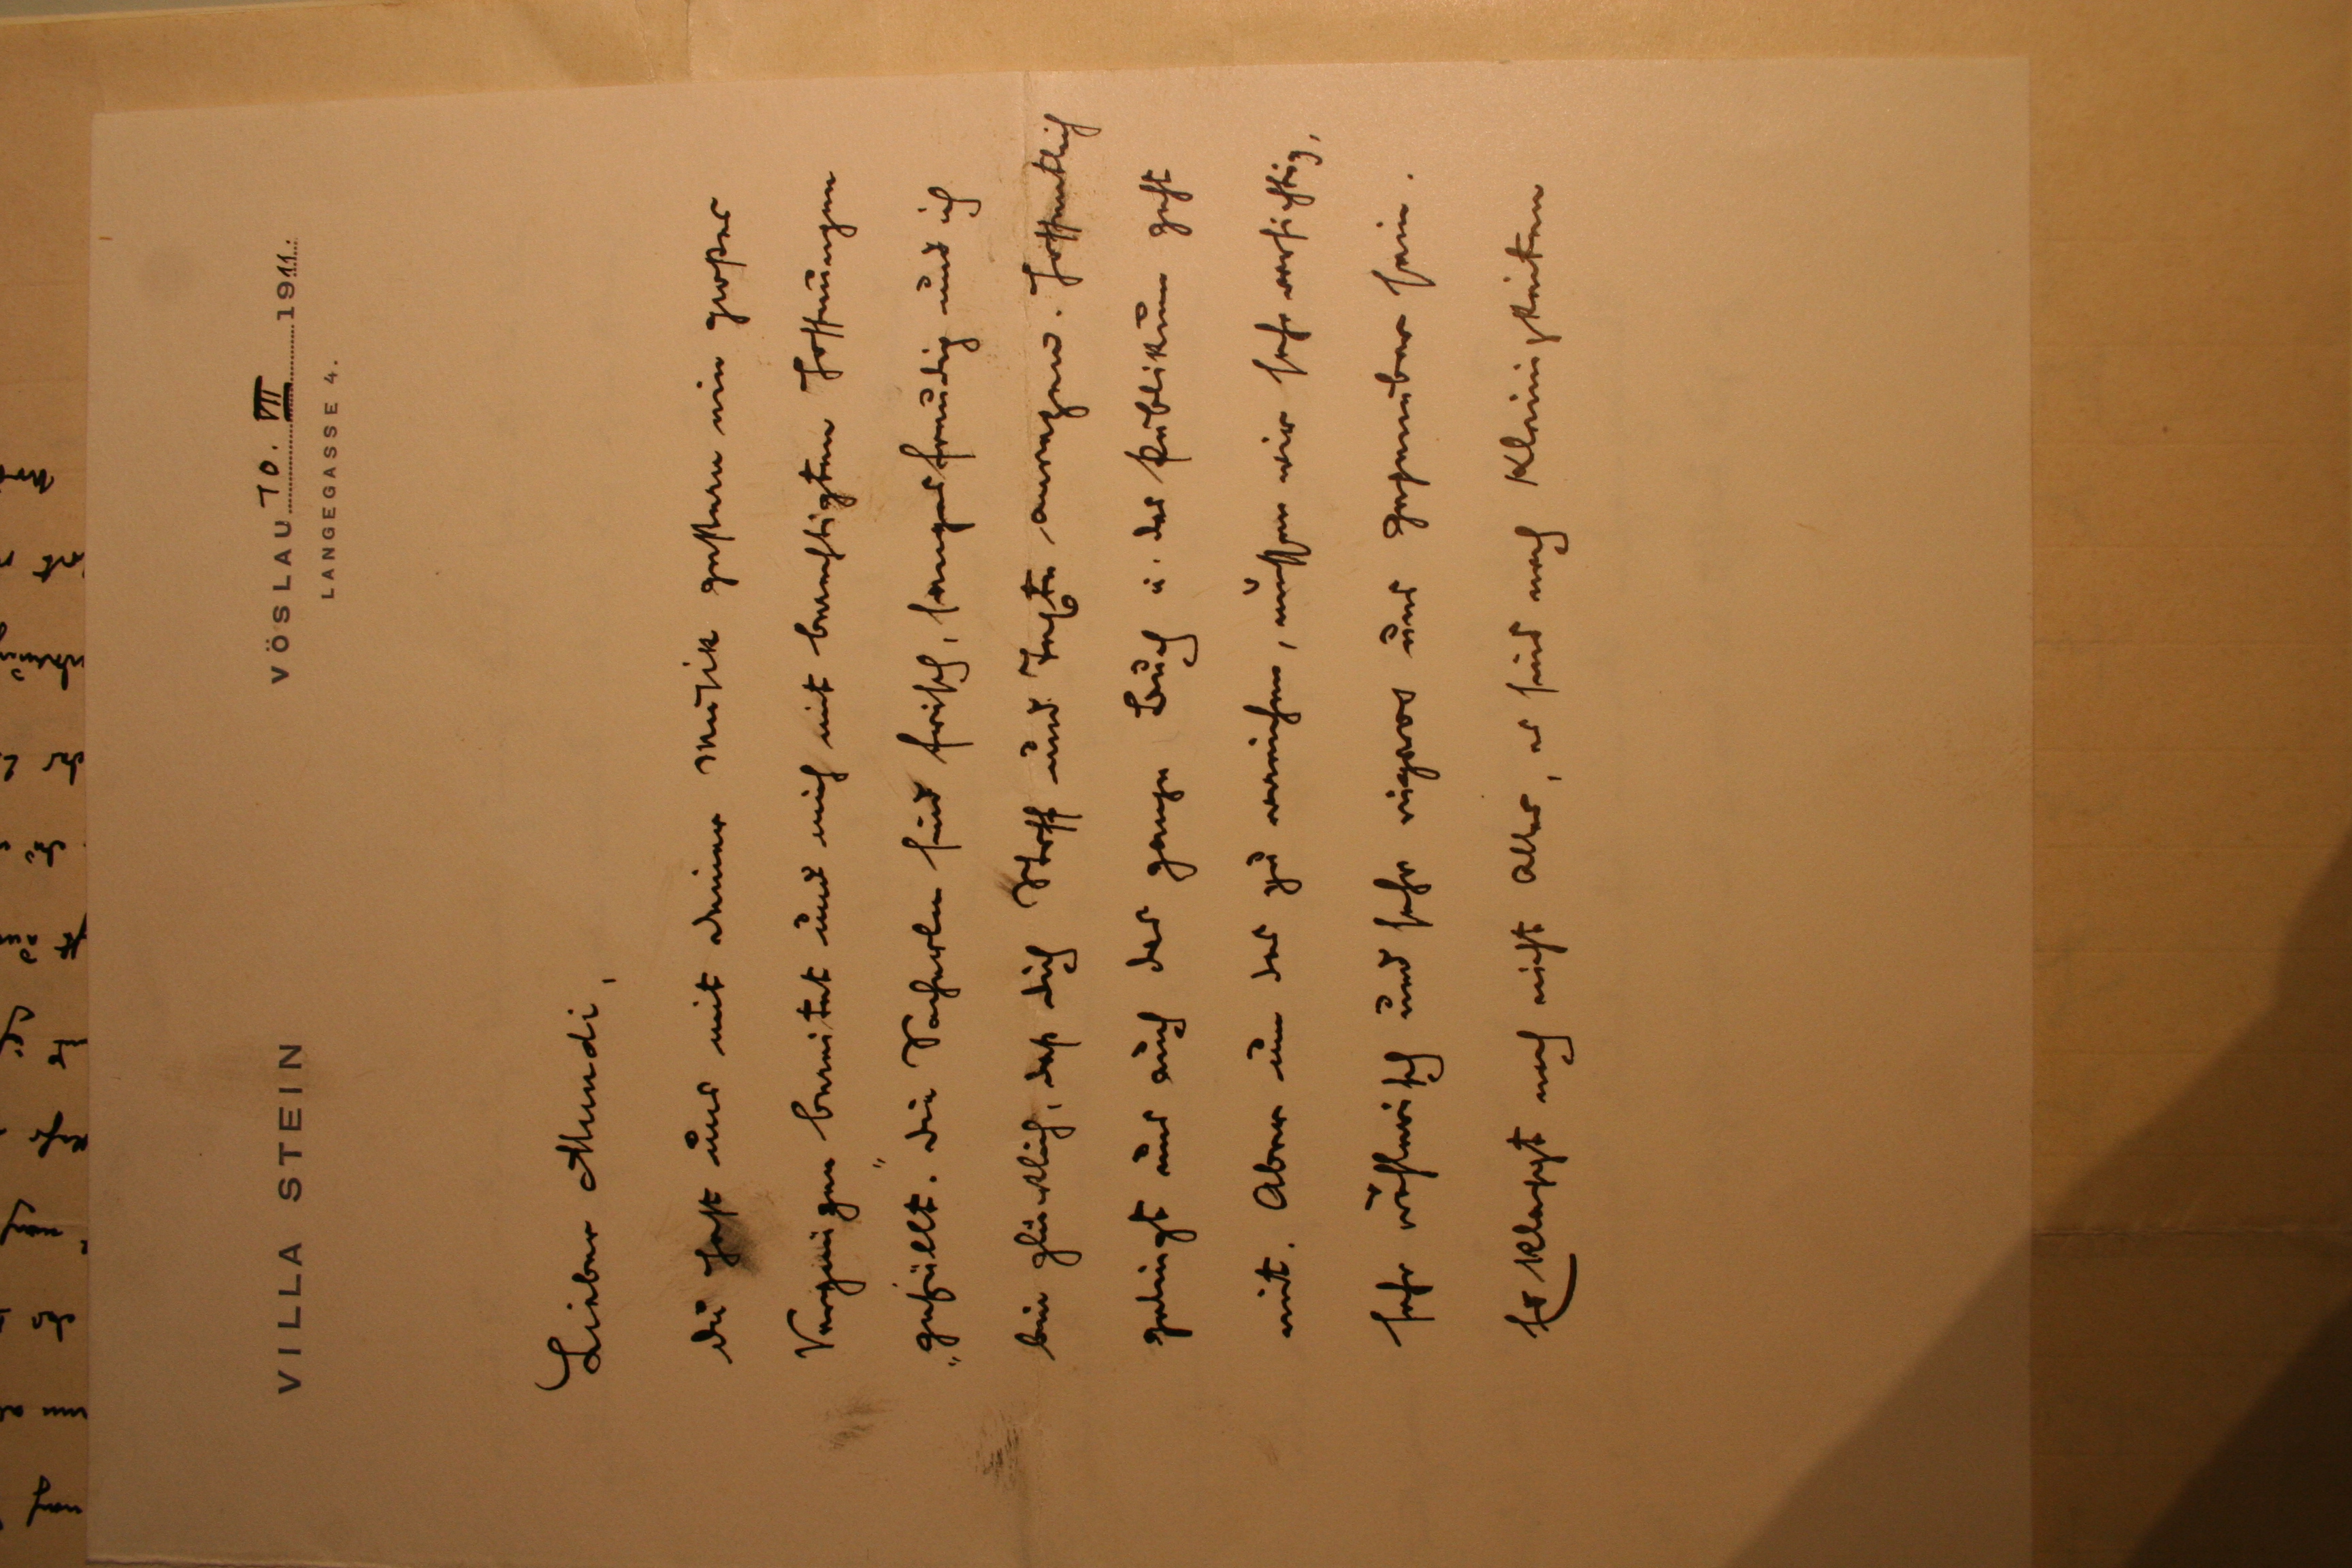 VILLA STEIN
VÖSLAU 10. VII 1911.
LANGEGASSE 4.
Lieber Mundi,
du hast uns mit deiner Musik gestern ein großes
Vergnügen bereitet und mich mit berechtigten Hoffnungen
„gefüllt.“ Die Sacherln sind frisch, sangesfreudig und ich
bin glücklich, daß dich Stoff und Texte anregen. Hoffentlich
gelingt uns auch das ganze Buch u. das Publikum geht
mit. Aber um das zu erreichen, müssen wir sehr vorsichtig,
sehr wählerisch und sehr rigoros uns gegenüber sein.
Es klappt noch nicht Alles, es sind noch Kleinigkeiten